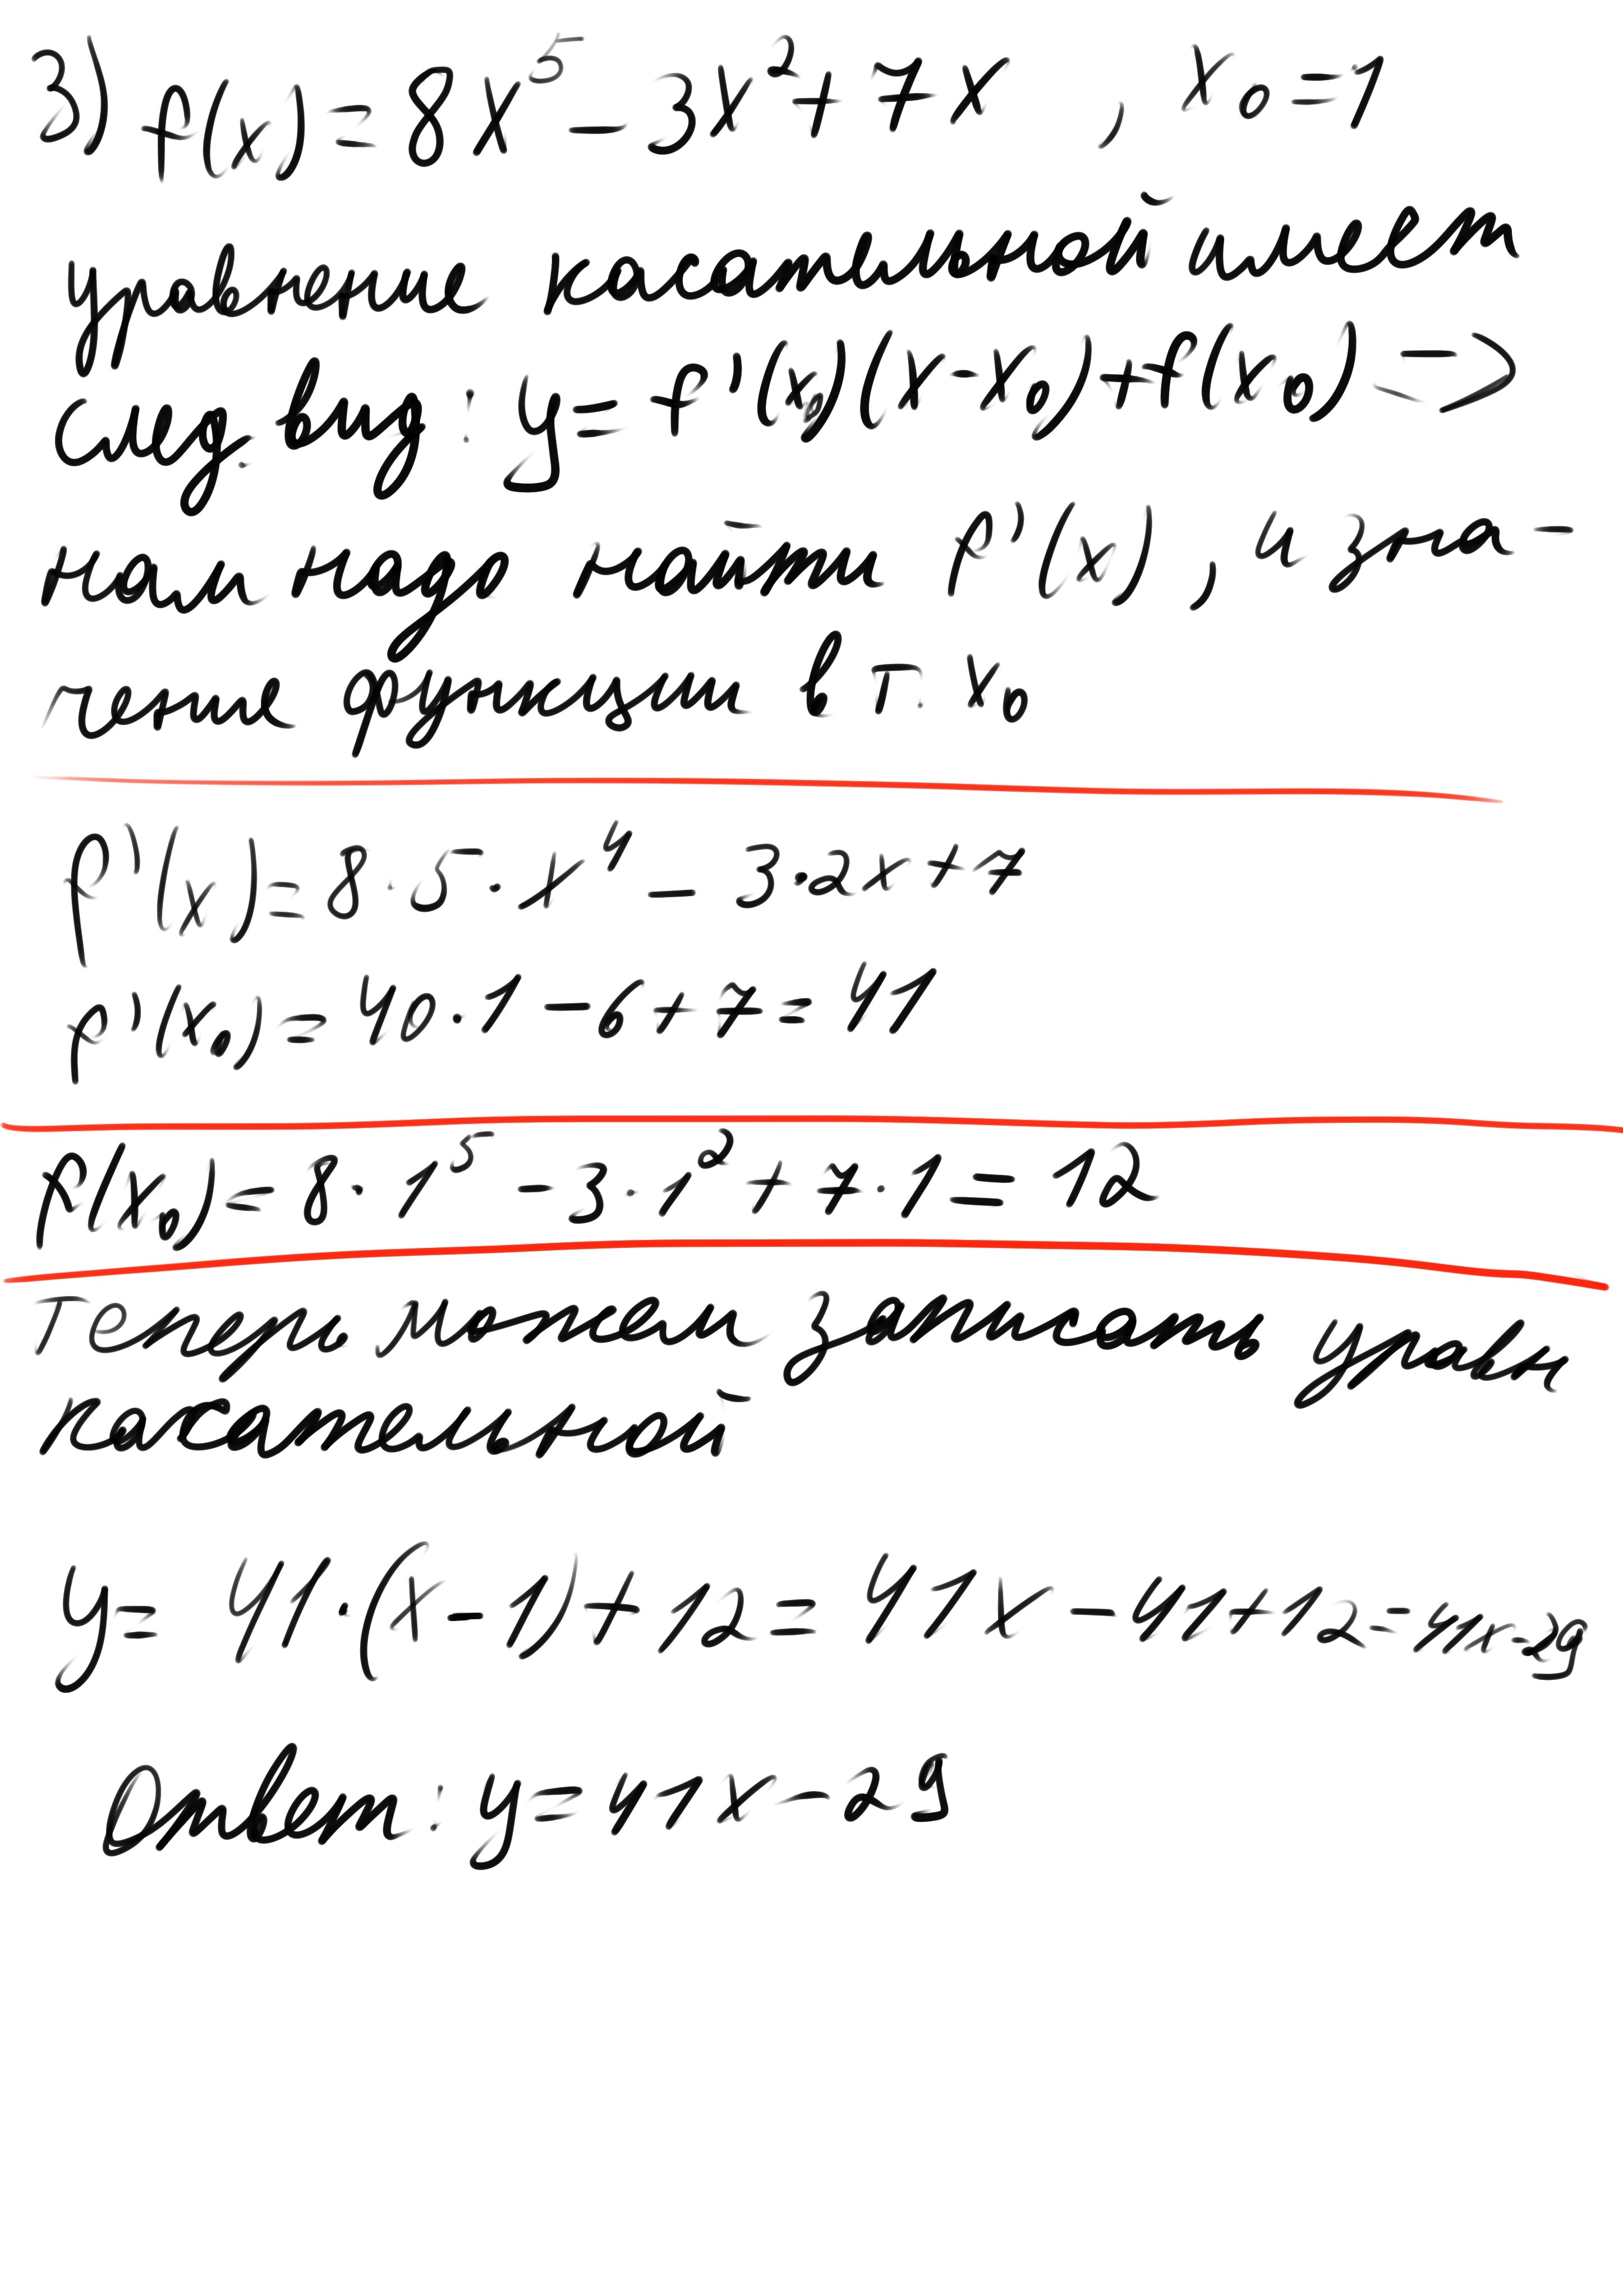 3) f(x) = 8x⁵ - 3x² + 7x , x₀ = 1
уравнение касательной имеет
след. вид: y = f'(x₀)(x-x₀)+f(x₀) =>
нам надо найти f'(x), и зна-
чение функции в т. x₀
f'(x) = 8·5·x⁴ - 3·2x+7
f'(x₀) = 40·1 - 6 + 7 = 41
f(x₀) = 8·1⁵ - 3·1² + 7·1 = 12
Теперь можем записать уравн
касательной
y = 41·(x-1)+12 = 41x - 41+12 = 41x-29
Ответ: y = 41x-29